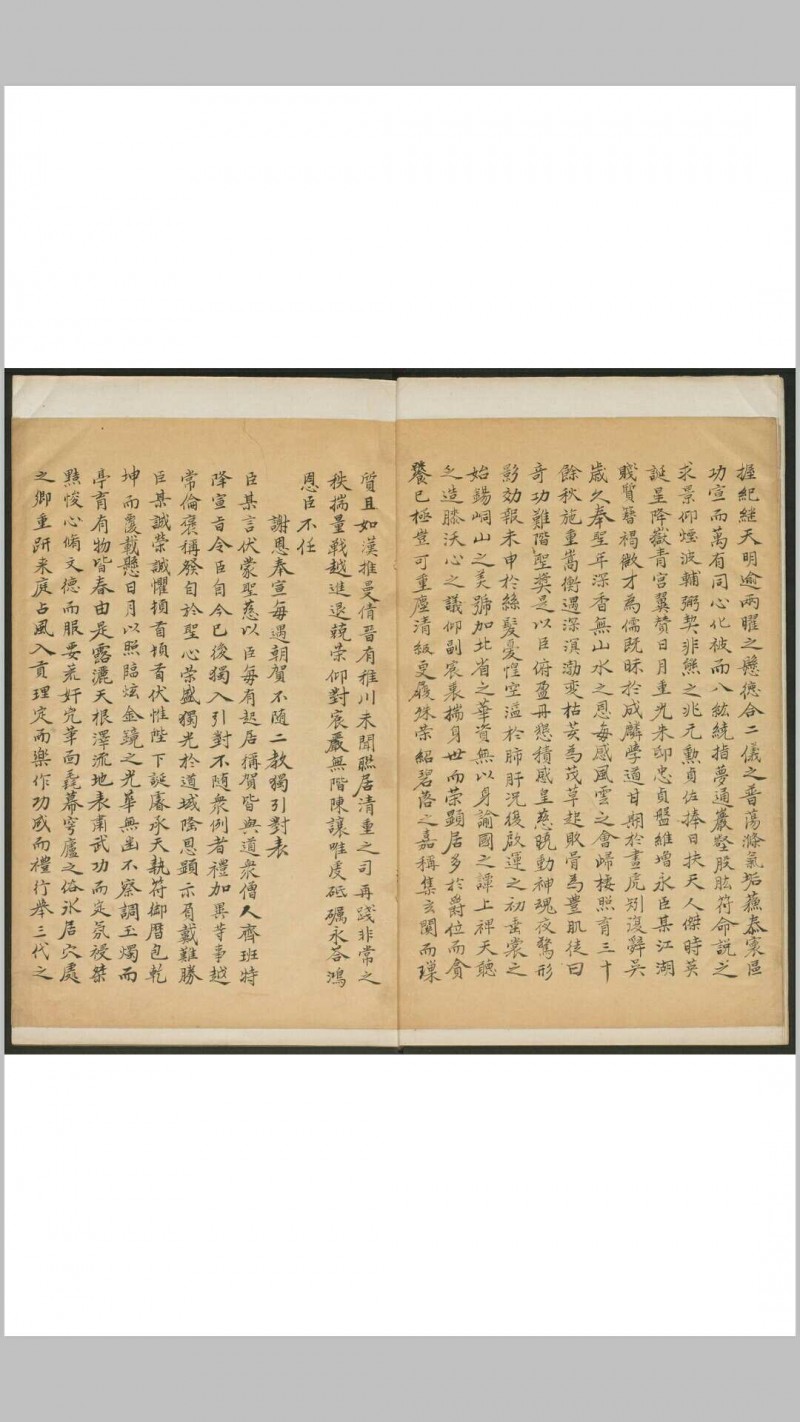 握紀継天明逾兩曜之懸德合二儀之普蕩滌氣垢蘓泰寰區
功宣而萬有同心化被而八紘統指夢通巖壑股肱符命説之
求景仰煙波輔弼契非熊之兆元勲貞佐捧日扶天人傑時英
誕星降嶽青宮翼賛日月重光朱邸忠貞盤維增永臣某江湖
賎質簪褐微才為儒既昧於成麟學道甘期於畫虎別復辤吴
歳久奉聖年深香無山水之恩每感風雲之會歸棲照育三十
餘秋施重嵩衡遇深溟渤変枯荄為茂草起敗骨為豐肌徒曰
奇功難階聖奬是以臣俯蓋丹懇積感皇慈曉動神魂夜驚形
影効報未申於絲髮憂惶空溢於肺肝況復啟運之初垂裳之
始錫峒山之美號加北省之華資無以身諭國之譚上裨天聽
乏造膝沃心之議仰副宸衷揣身世而榮顯居多於爵位而貪
饕已極豈可重塵清級更履殊榮紹碧落之嘉稱集玄闗而璅
質且如漢推曼倩晉有稚川未聞聮居清重之司再踐非常之
秩揣量戰越進退兢榮仰對宸嚴無階陳讓唯虔砥礪永荅鴻
恩臣不任
謝恩奉宣每遇朝賀不隨二教獨引對表
臣某言伏蒙聖慈以臣每有起居稱賀皆與道衆僧人齊班特
降宣旨令臣自今已後獨入引對不隨衆例者禮加異等事越
常倫襃稱發自於聖心榮盛獨光於道域隆恩顯示肩戴難勝
臣某誠榮誠懼頓首頓首伏惟陛下誕膺承天執符御曆包乾
坤而覆載懸日月以照臨炫金鏡之光華無幽不察調玉燭而
亭育有物皆春由是露灑天根澤流地表肅武功而定氛祲桀
黠悛心脩文德而服要荒奸宄革面毳幕穹廬之俗氷居穴處
之鄉重趼来庭占風入貢理定而樂作功成而禮行舉三代之